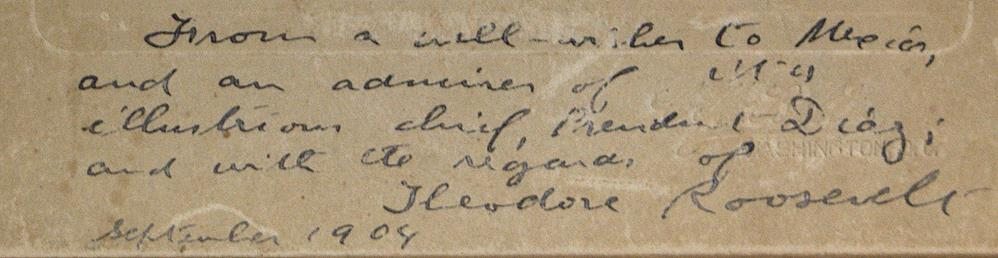 From a well-wisher to Mexico,
and an admirer of its
illustrious chief, President Diaz;
and with the regards of
WASHINGTON, D.C.
Theodore Roosevelt
September 1904